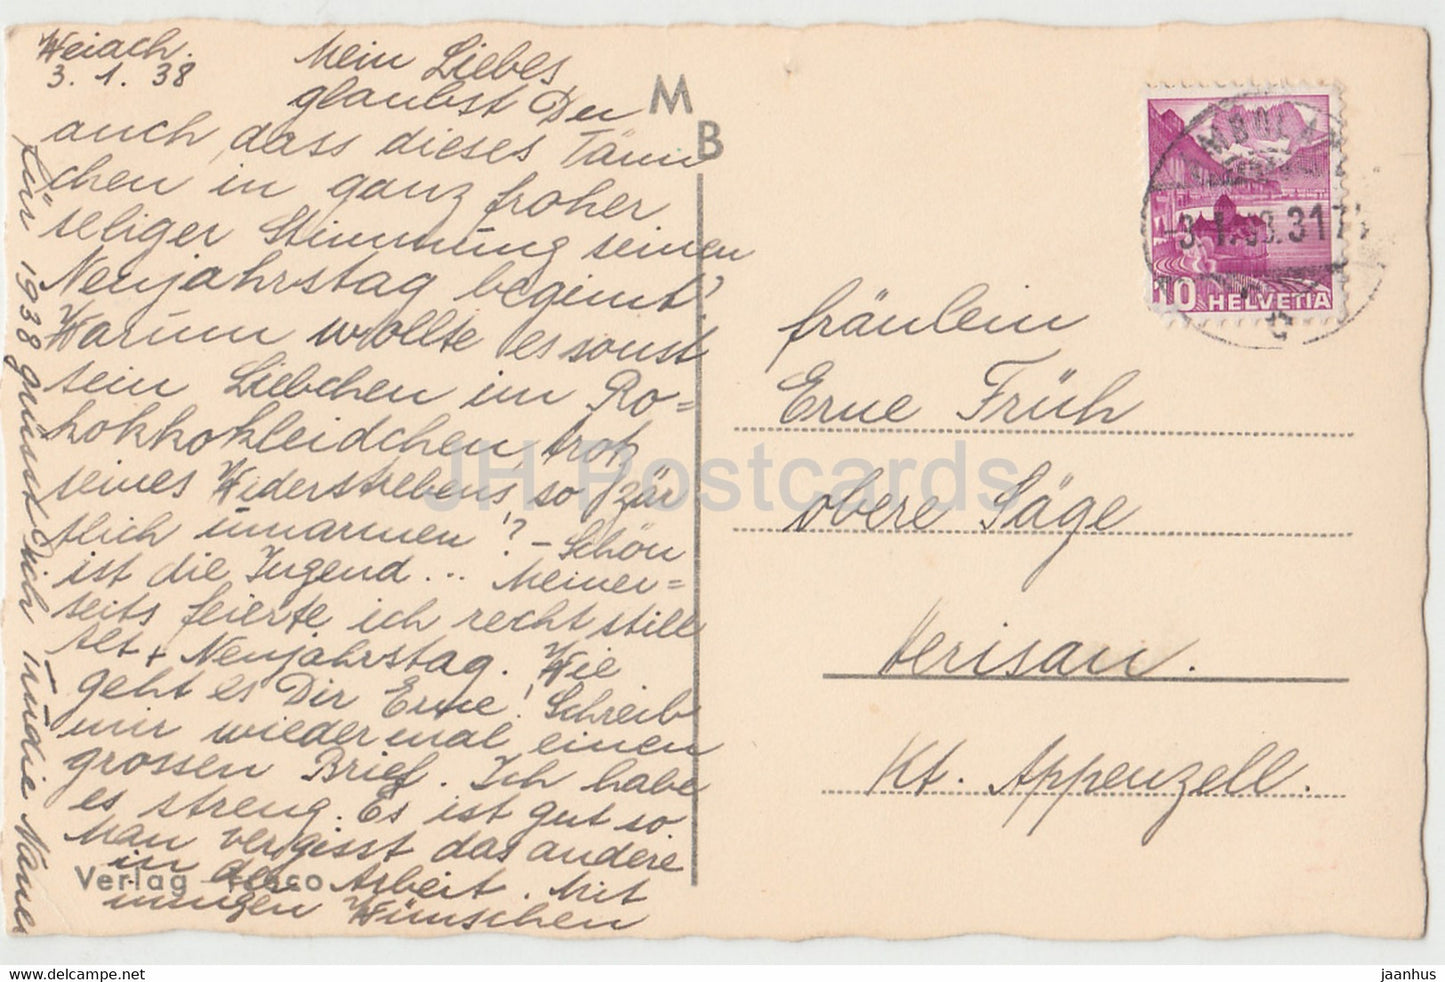 Weiach.
3. 1. 38
Mein Liebes
glaubst Du
auch, dass dieses Tänn
chen in ganz froher
seliger Stimmung seinen
Neujahrstag beginnt?
Warum wollte es sonst
sein Liebchen im Ro=
kokkokleidchen, trotz
seines Widerstrebens, so zär
tlich umarmen!? – Schön
ist die Jugend... Meiner=
seits feierte ich recht still
Alt + Neujahrstag. Wie
geht es Dir Erne! Schreib
mir wieder mal einen
grossen Brief. Ich habe
es streng. Es ist gut so.
Man vergisst das andere
in der Arbeit. Mit
innigen Wünschen
für 1938 grüsst Dich müdie
Verlag
M
B
HELVETIA
10
fräulein
Erne Früh
obere Säge
Herisau.
Kt. Appenzell.
JH Postcards
https://jhpostcard.net
jaanhus